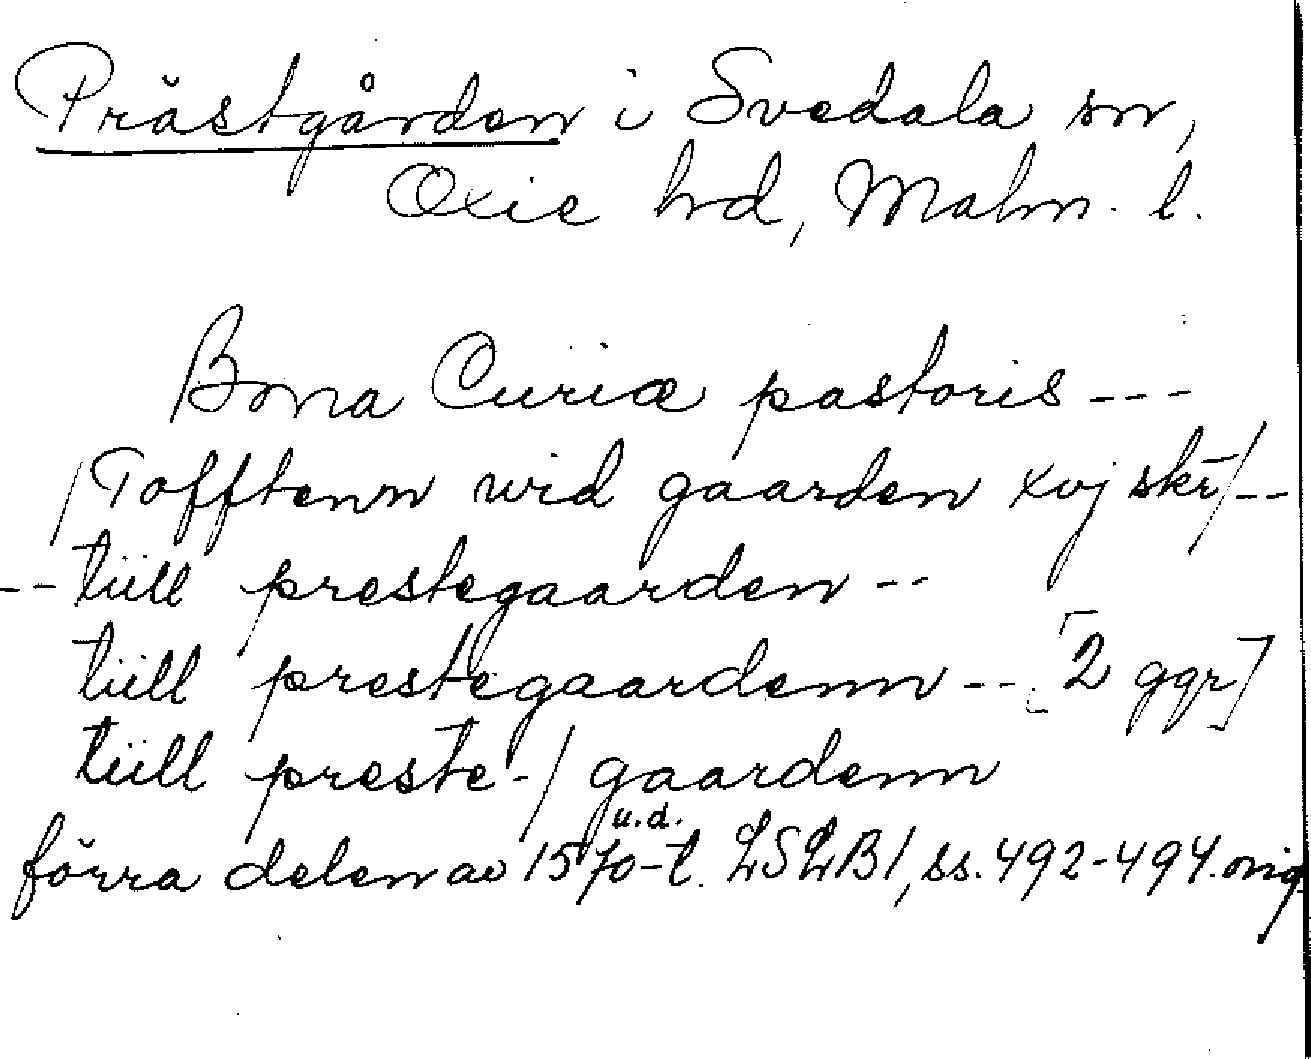 Prästgården i Svedala sn,
Oxie hrd, Malm. l.
Bona Curiæ pastoris ---
/Tofftenn wid gaarden xvj skr̄/--
-- tiill prestegaarden --
tiill prestegaardenn -- [2 ggr]
tiill preste-/gaardenn
u.d.
förra delen av 1570-t. LSLB1, ss. 492-494. orig.